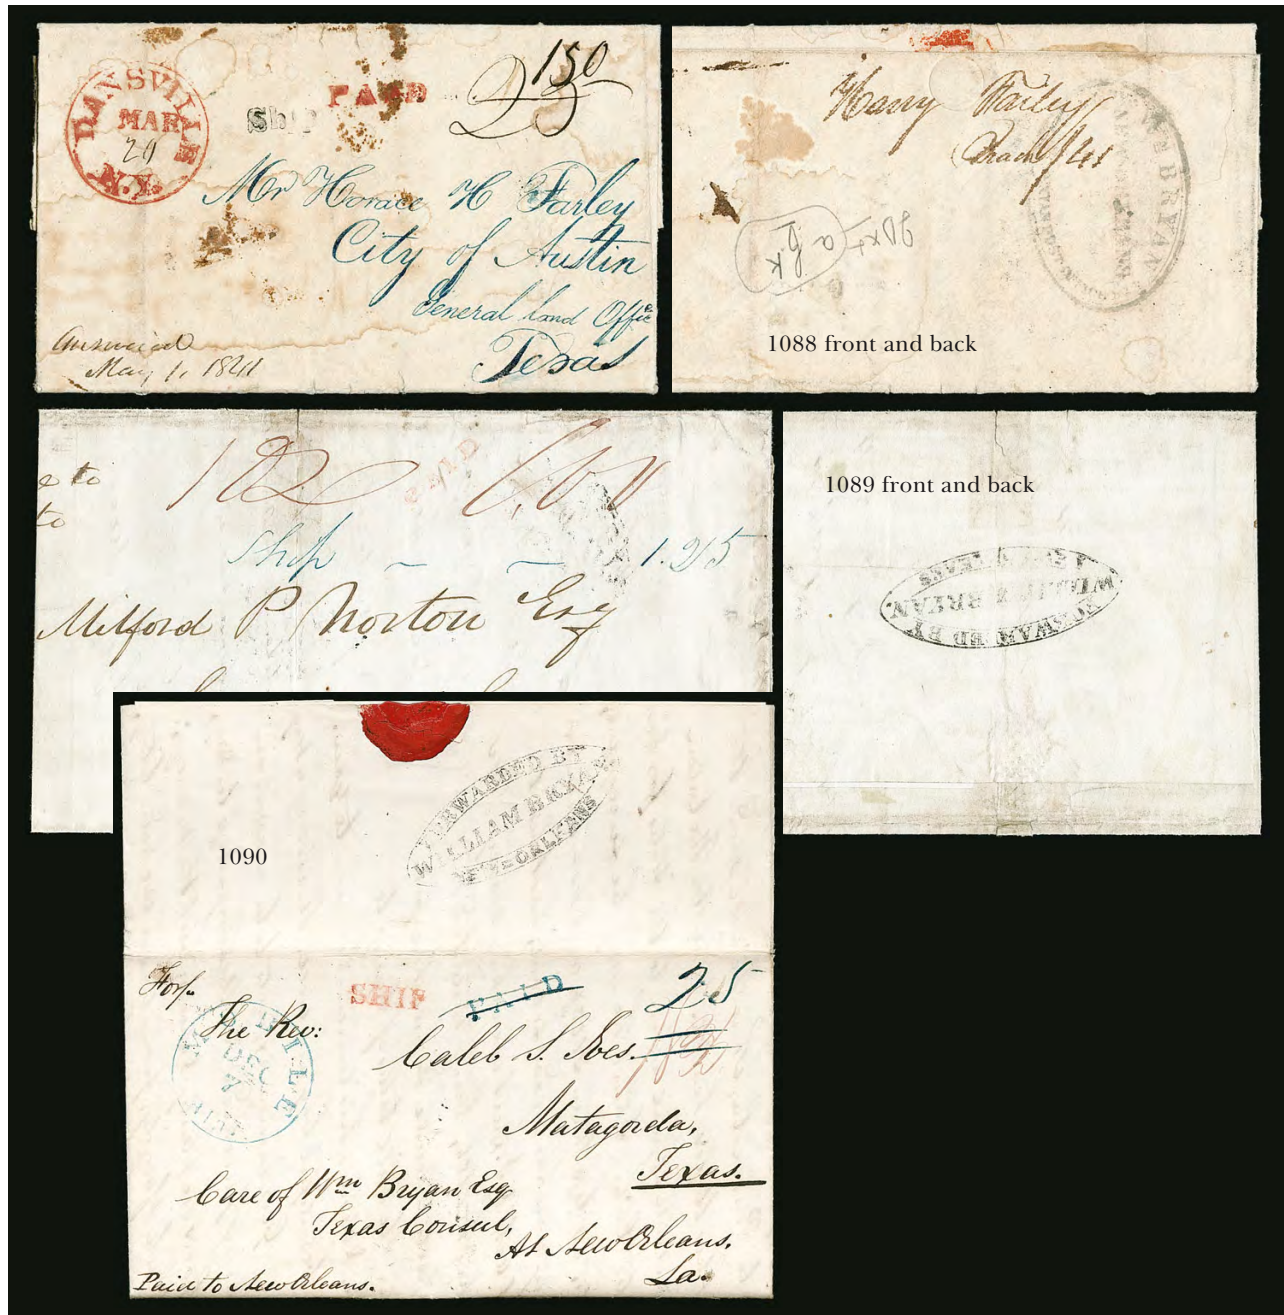 DANSVILLE
N.Y.
MAR
20
PAID
Ship
150
25
Mr Horace H Farley
City of Austin
General Land Office
Texas
Answered
May 1, 1841
Harry Farley
WM BRYAN
1088 front and back
PAID
ship 1.25
Milford P Norton Esq
1089 front and back
FORWARDED BY
WILLIAM BRYAN.
FORWARDED BY
WILLIAM BRYAN
NEW-ORLEANS
1090
MOBILE
DEC
7
SHIP
PAID
25
The Rev:
Caleb S. Ives.
Matagorda,
Texas.
Care of Wm Bryan Esq
Texas Consul,
At New Orleans.
La.
Paid to New Orleans.